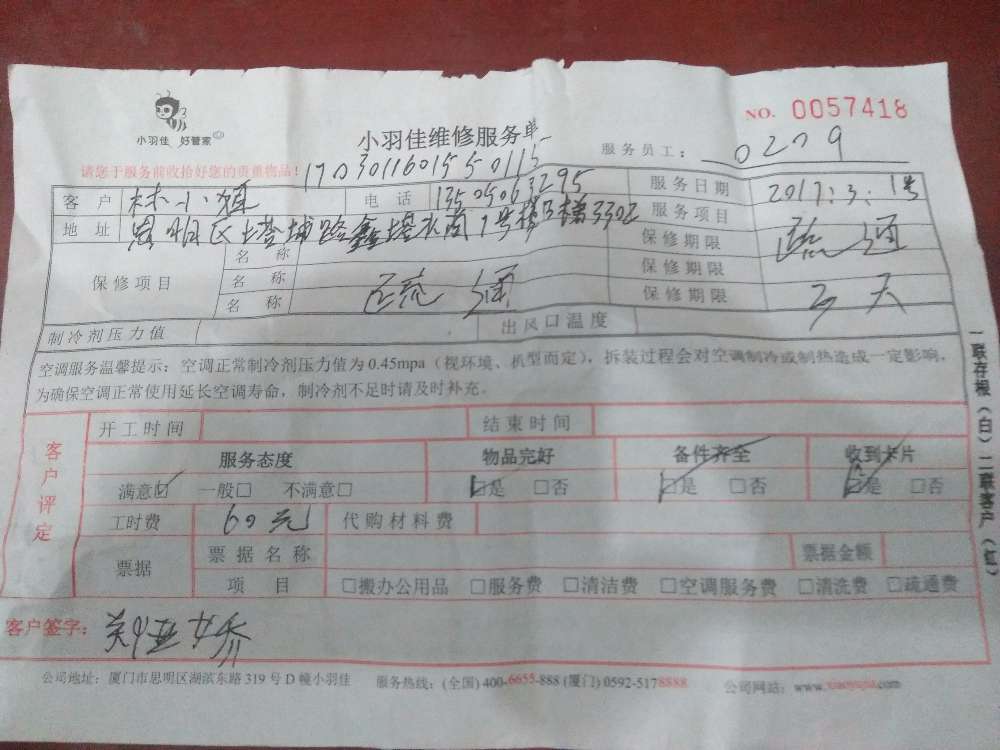 小羽佳 好管家
小羽佳维修服务单
NO. 0057418
请您于服务前收拾好您的贵重物品!
17030116015550115
服务员工: 0209
客户 林小姐 电话 13505063295 服务日期 2017.3.1号
地址 思明区 路 1号楼 梯3302 服务项目 疏通
保修项目 名称 保修期限
名称 疏通 保修期限
名称 保修期限 3天
制冷剂压力值 出风口温度
空调服务温馨提示:空调正常制冷剂压力值为0.45mpa(视环境、机型而定),拆装过程会对空调制冷或制热造成一定影响,
为确保空调正常使用延长空调寿命,制冷剂不足时请及时补充。
客户评定
开工时间 结束时间
服务态度 物品完好 备件齐全 收到卡片
满意☑ 一般□ 不满意□ ☑是 □否 ☑是 □否 ☑是 □否
工时费 60元 代购材料费
票据 票据名称 票据金额
项目 □搬办公用品 □服务费 □清洁费 □空调服务费 □清洗费 □疏通费
客户签字:
公司地址:厦门市思明区湖滨东路319号D幢小羽佳 服务热线:(全国)400-6655-888(厦门)0592-5178888 公司网站:www.xiaoyujia.com
一联存根(白)二联客户(红)